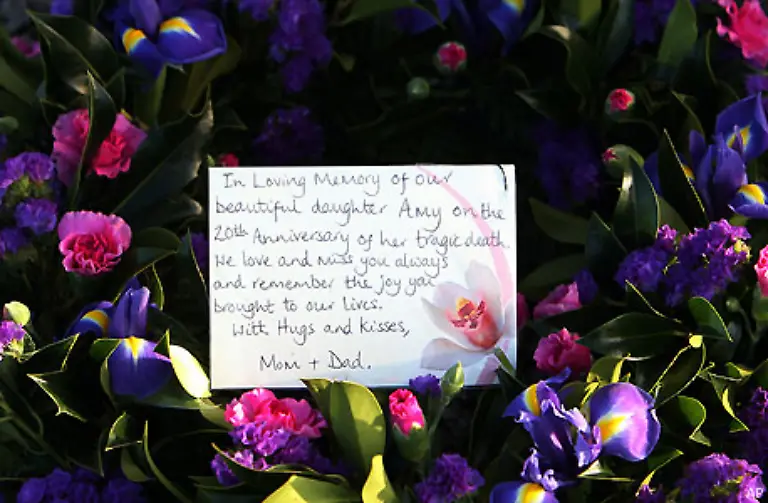 In Loving Memory of our
beautiful daughter Amy on the
20th Anniversary of her tragic death
We love and miss you always
and remember the joy you
brought to our lives.
With Hugs and kisses,
Mom + Dad.
AP